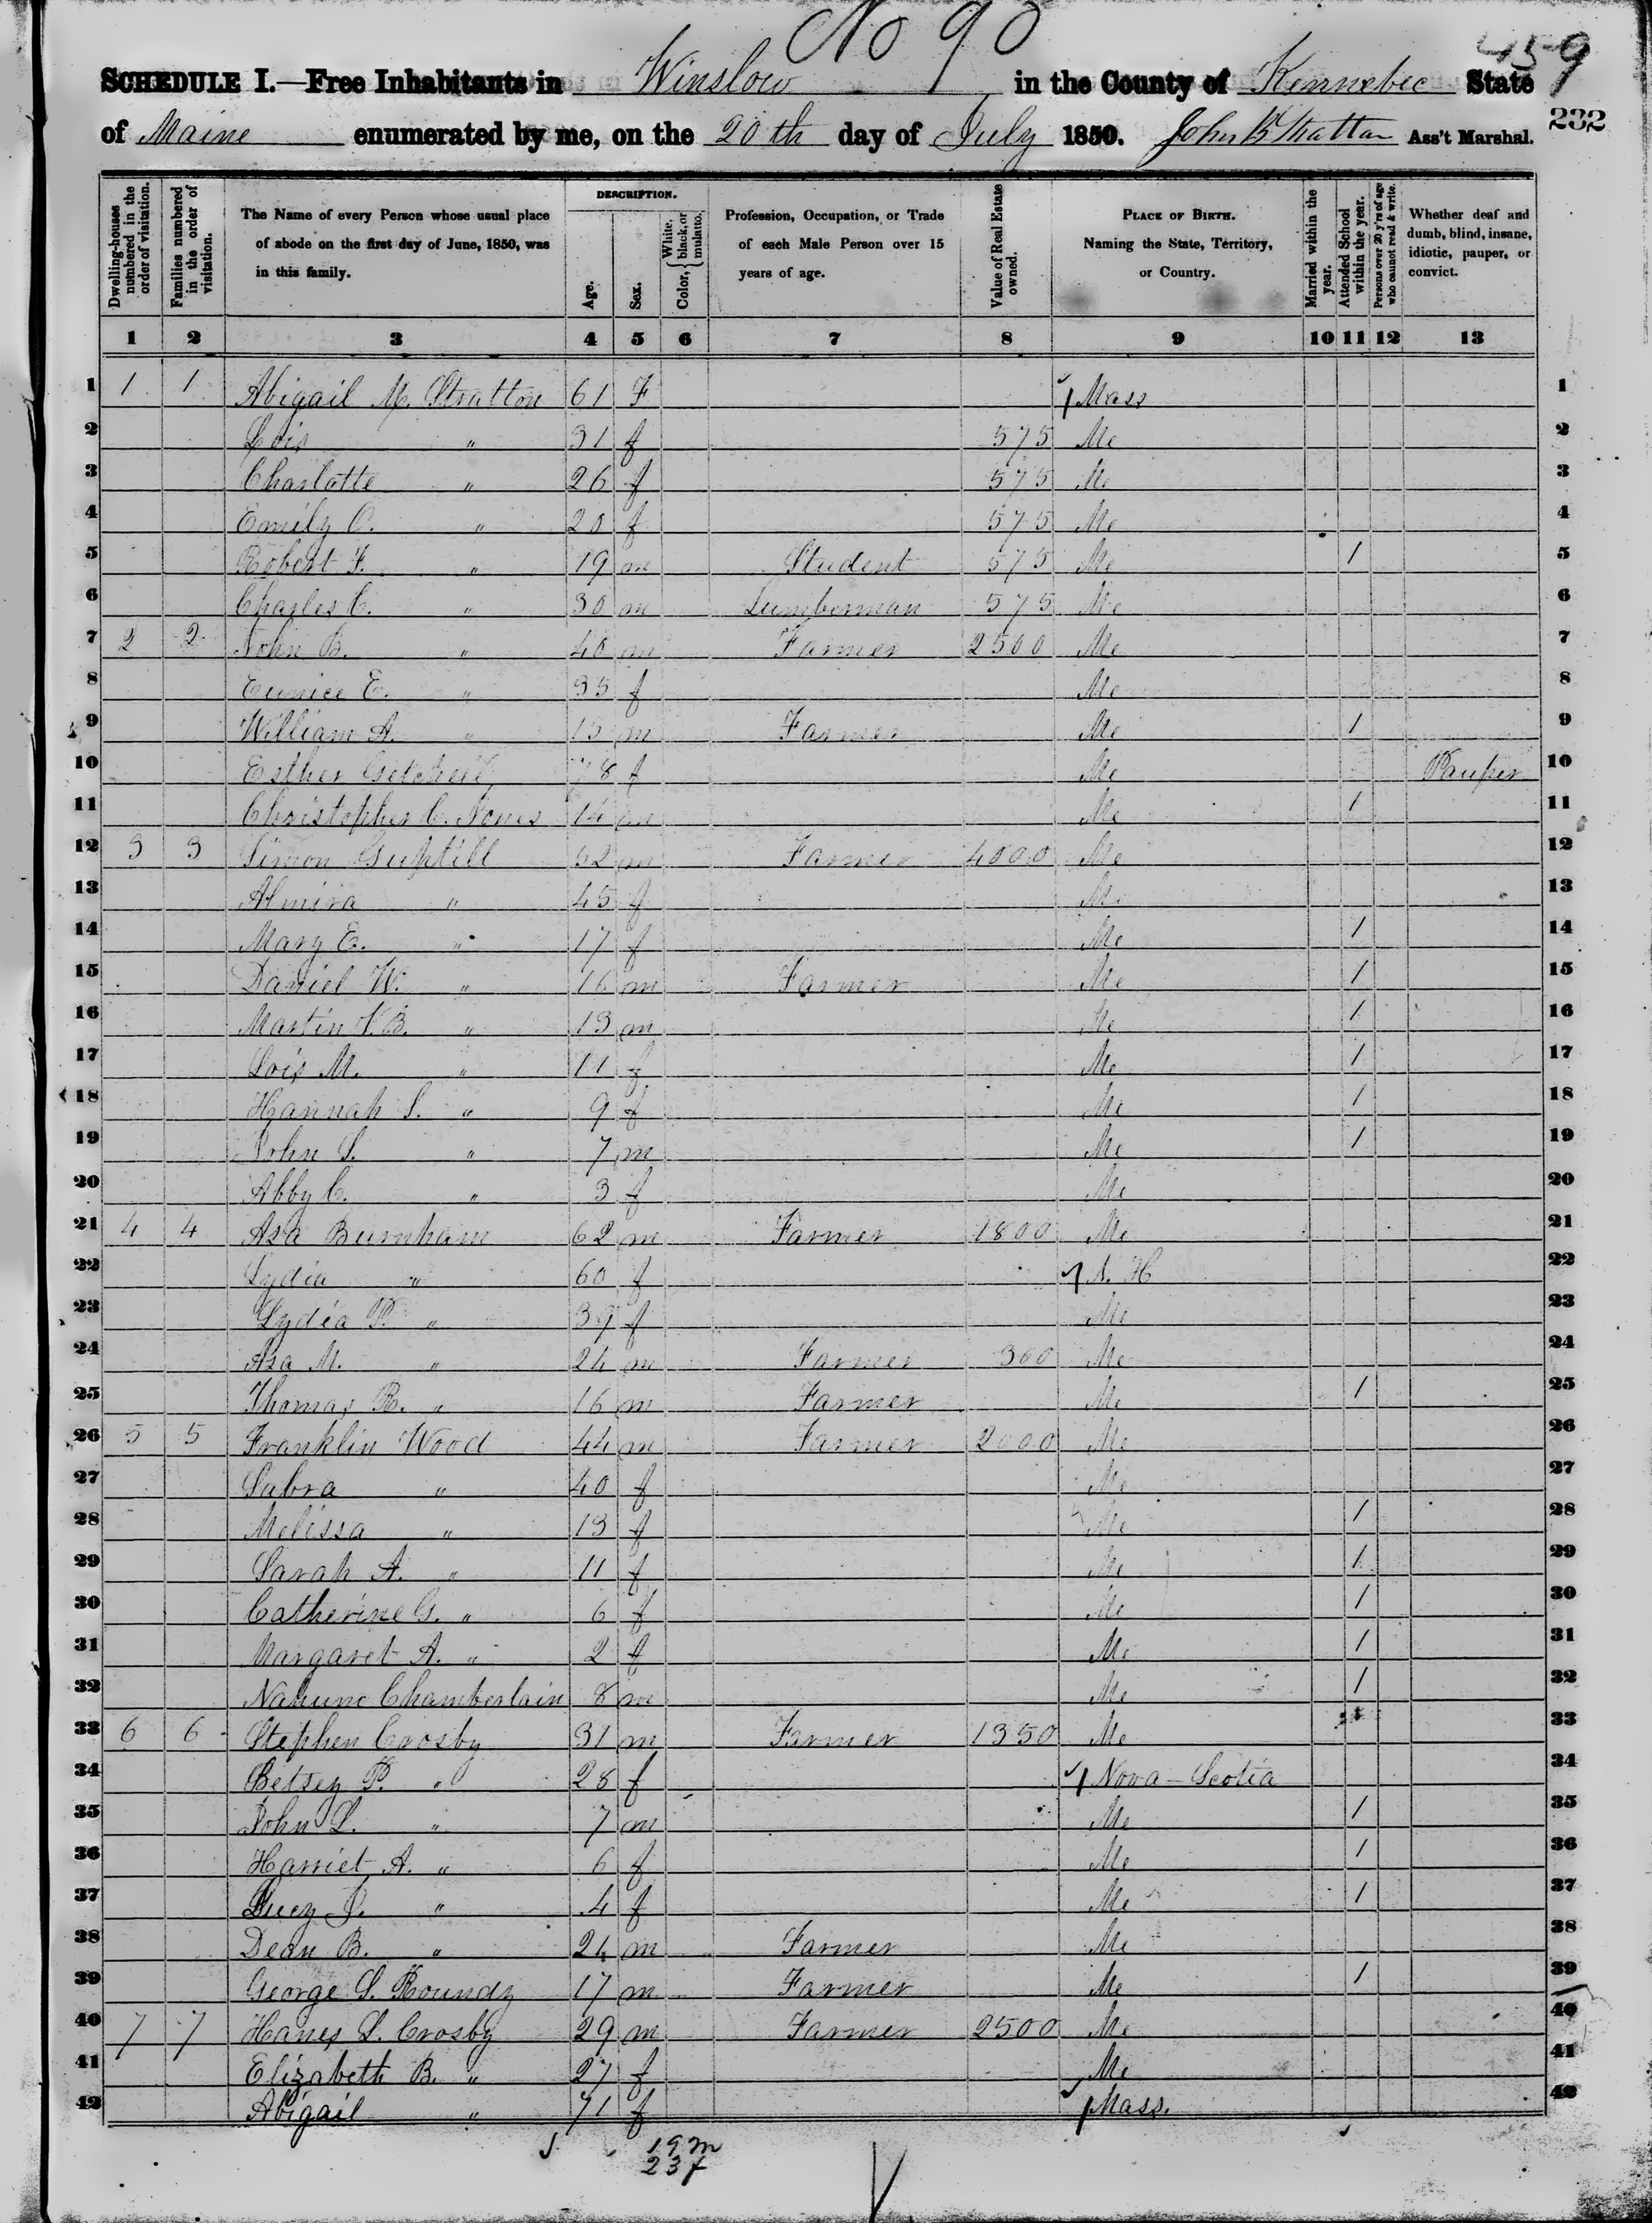 No 90
459
SCHEDULE I.—Free Inhabitants in Winslow in the County of Kennebec State
232
of Maine enumerated by me, on the 20th day of July 1850. John B Stratton Ass't Marshal.
Dwelling-houses numbered in the order of visitation.
Families numbered in the order of visitation.
The Name of every Person whose usual place of abode on the first day of June, 1850, was in this family.
DESCRIPTION.
Age.
Sex.
Color, { White, black, or mulatto.
Profession, Occupation, or Trade of each Male Person over 15 years of age.
Value of Real Estate owned.
PLACE OF BIRTH. Naming the State, Territory, or Country.
Married within the year.
Attended School within the year.
Persons over 20 y'rs of age who cannot read & write.
Whether deaf and dumb, blind, insane, idiotic, pauper, or convict.
1 2 3 4 5 6 7 8 9 10 11 12 13
1 1 1 Abigail M. Stratton 61 F Mass 1
2 Lois " 31 f 575 Me 2
3 Charlotte " 26 f 575 Me 3
4 Emily C. " 20 f 575 Me 4
5 Robert F. " 19 m Student 575 Me 1 5
6 Charles C. " 30 m Lumberman 575 Me 6
7 2 2 John B. " 40 m Farmer 2500 Me 7
8 Eunice E. " 35 f Me 8
9 William A. " 15 m Farmer Me 1 9
10 Esther Getchell 78 f Me Pauper 10
11 Christopher C. Jones 14 m Me 1 11
12 3 3 Simon Guptill 52 m Farmer 4000 Me 12
13 Almira " 45 f Me 13
14 Mary E. " 17 f Me 1 14
15 Daniel W. " 16 m Farmer Me 1 15
16 Martin V.B. " 13 m Me 1 16
17 Lois M. " 11 f Me 1 17
18 Hannah S. " 9 f Me 1 18
19 John S. " 7 m Me 1 19
20 Abby C. " 3 f Me 20
21 4 4 Asa Burnham 62 m Farmer 1800 Me 21
22 Lydia " 60 f N. H 22
23 Lydia P. " 39 f Me 23
24 Asa M. " 24 m Farmer 300 Me 24
25 Thomas R. " 16 m Farmer Me 1 25
26 5 5 Franklin Wood 44 m Farmer 2000 Me 26
27 Sabra " 40 f Me 27
28 Melissa " 13 f Me 1 28
29 Sarah A. " 11 f Me 1 29
30 Catherine G. " 6 f Me 1 30
31 Margaret A. " 2 f Me 1 31
32 Chamberlain 8 m Me 1 32
33 6 6 Stephen Crosby 31 m Farmer 1350 Me 33
34 Betsey P. " 28 f Nova-Scotia 34
35 John L. " 7 m Me 1 35
36 Harriet A. " 6 f Me 1 36
37 Lucy J. " 4 f Me 1 37
38 Dean B. " 24 m Farmer Me 38
39 George S. Roundy 17 m Farmer Me 1 39
40 7 7 Hanes L. Crosby 29 m Farmer 2500 Me 40
41 Elizabeth B. " 27 f Me 41
42 Abigail " 71 f Mass. 42
19 m
23 f